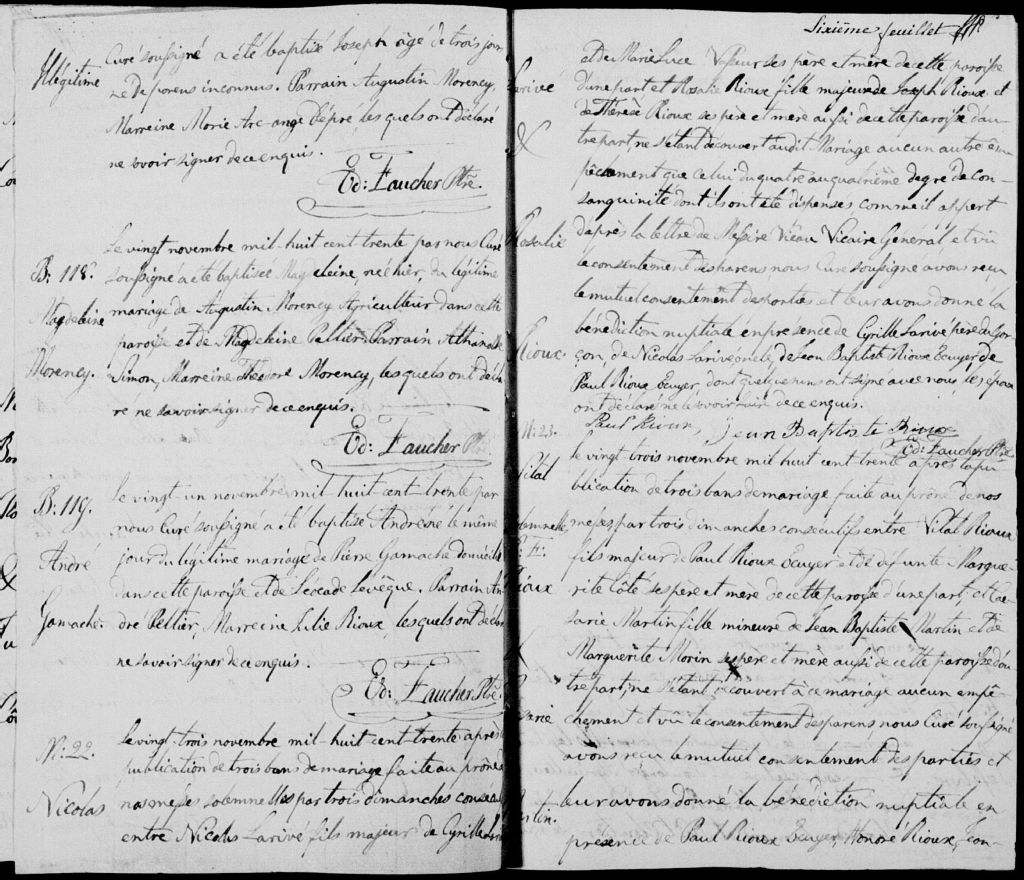 Illégitime
Curé soussigné a été baptisé Joseph âgé de trois jours
né de parens inconnus. Parrain Augustin Morency,
Marreine Marie Arc-ange Lépre, lesquels ont déclaré
ne savoir signer de ce enquis.
Ed: Faucher Ptre.
B: 118.
Magdeleine
Morency.
Le vingt novembre mil-huit cent trente par nous Curé
soussigné a été baptisée Magdeleine, née hier, du légitime
mariage de Augustin Morency Agriculteur dans cette
paroisse et de Magdeleine Pellier. Parrain Athanase
Simon, Marreine Morency, lesquels ont décla-
ré ne savoir signer de ce enquis.
Ed: Faucher Ptre.
B: 119.
André
Gamache
Le vingt-un novembre mil-huit cent-trente par
nous Curé soussigné a été baptisé André né le même
jour du légitime mariage de Pierre Gamache domicilié
dans cette paroisse et de Léocade Levêque, Parrain An-
dré Peltier, Marreine Julie Rioux, lesquels ont déclaré
ne savoir signer de ce enquis.
Ed: Faucher Ptre.
M: 22.
Nicolas
Le vingt-trois novembre mil-huit-cent-trente après la
publication de trois bans de mariage faite au prône de
nos messes solemnelles par trois dimanches consecu
entre Nicolas Larivé fils majeur de Cyrille Lar
Sixième feuillet
Larivé
&
Rosalie
Rioux.
et de Marie Luce Vasseur ses père et mère de cette paroisse
d'une part et Rosalie Rioux fille majeure de Joseph Rioux et
de Thérèse Rioux ses père et mère aussi de cette paroisse d'au
tre part, ne s'étant découvert audit Mariage aucun autre em
pêchement que celui du quatre au quatrième degré de con-
sanguinité dont ils ont été dispensés comme il appert
d'après la lettre de Messire Viau Vicaire Général et vû
le consentement des parens nous Curé soussigné avons reçu
le mutuel consentement des parties et leur avons donné la
bénédiction nuptiale en presence de Cyrille Larivé père du gar
çon, de Nicolas Larivé oncle, de Jean Baptiste Rioux Ecuyer, de
Paul Rioux Ecuyer, dont quelques uns ont signé avec nous les époux
ont déclaré ne le savoir faire de ce enquis.
Paul Rioux, Jean Baptiste Rioux
Ed: Faucher Ptre
M: 23.
Vital
Rioux
&
tin.
le vingt trois novembre mil huit cent trente après la pu
blication de trois bans de mariage faite au prône de nos
messes par trois dimanches consecutifs entre Vital Rioux
fils majeur de Paul Rioux Ecuyer et de défunte Margue-
rite Côté ses père et mère de cette paroisse d'une part, et Cae-
sarie Martin fille mineure de Jean Baptiste Martin et de
Marguerite Morin ses père et mère aussi de cette paroisse d'au
tre part, ne s'étant découvert à ce mariage aucun empê-
chement et vû le consentement des parens, nous Curé soussigné
avons reçu le mutuel consentement des parties et
leur avons donné la bénédiction nuptiale en
presence de Paul Rioux Ecuyer, Honoré Rioux,